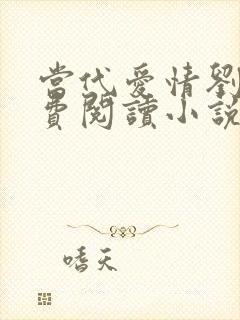 當代愛情劉
費閱讀小說
嗜天